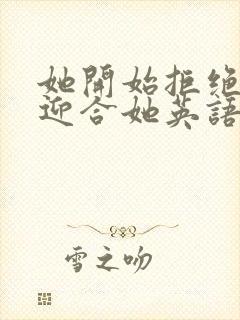 她開始拒絕
迎合她英語
雪之吻